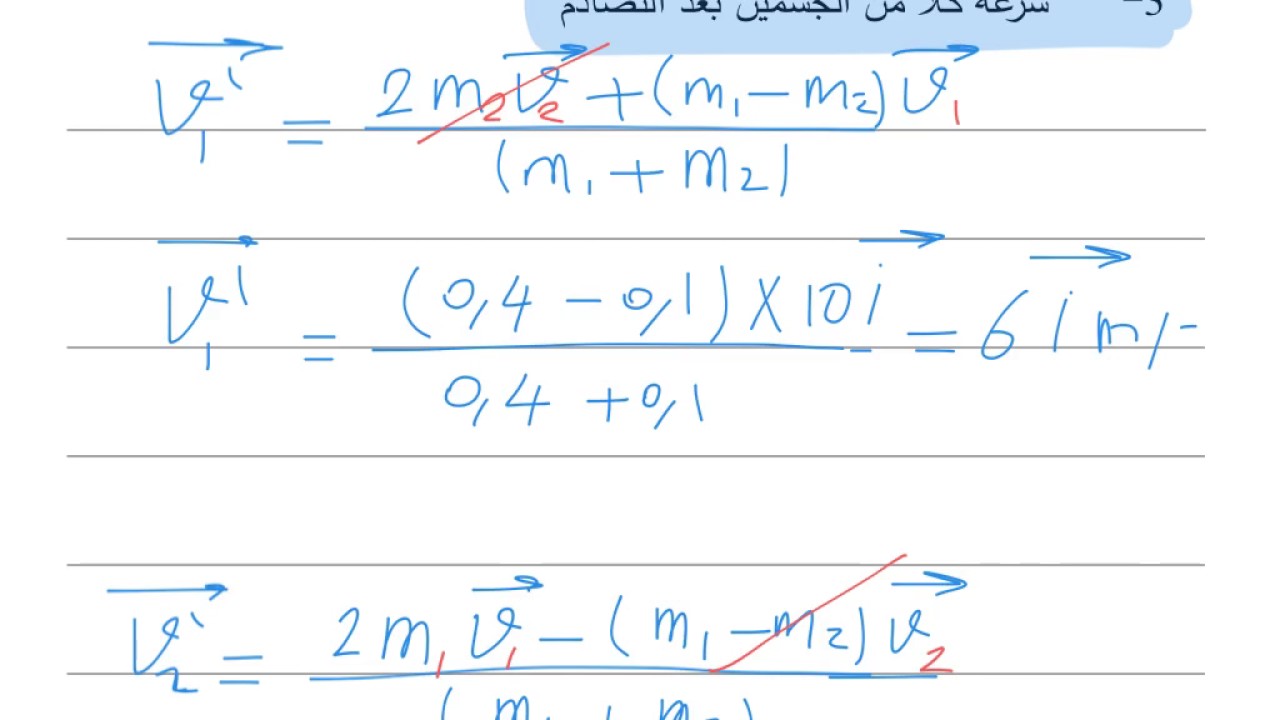 3- سرعة كلا من الجسمين بعد التصادم
v₁' = 2m₂v₂ + (m₁ - m₂)v₁
(m₁ + m₂)
v₁' = (0,4 - 0,1) X 10 i = 6 i m/
0,4 + 0,1
v₂' = 2m₁v₁ - (m₁ - m₂)v₂
(m₁ + m₂)